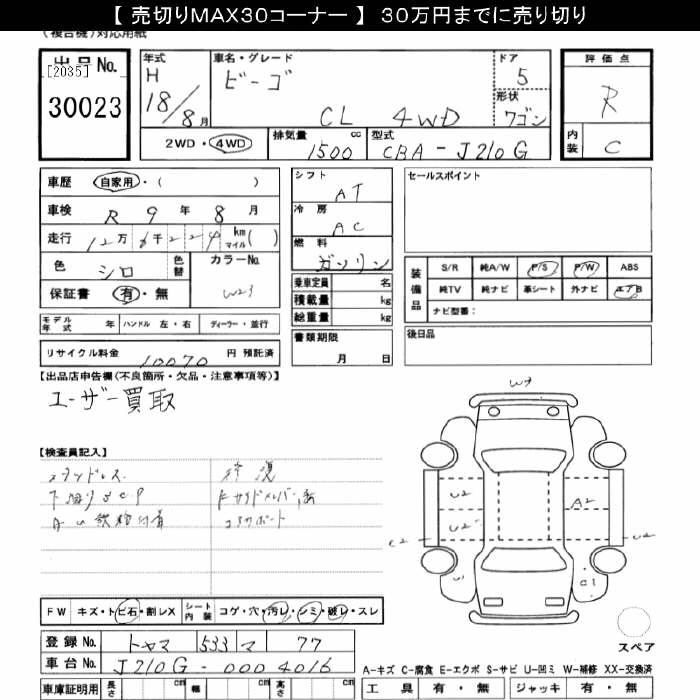 【 売切りMAX30コーナー 】 30万円までに売り切り
(複合機)対応用紙
出品No.
[2035]
30023
年式
H
18/8月
車名・グレード
ビーゴ
CL 4WD
ドア
5
形状
ワゴン
評価点
R
内装
C
2WD・4WD
排気量
1500 cc
型式
CBA-J210G
車歴 自家用・( )
車検 R 9年 8月
走行 12万 6千 2 2 4 km マイル( )
色 シロ 色替
カラーNo.
W23
保証書 有・無
モデル年式 年 ハンドル 左・右 ディーラー・並行
リサイクル料金 10070 円 預託済
シフト
AT
冷房
AC
燃料
ガソリン
乗車定員 名
積載量 kg
総重量 kg
書類期限
月 日
セールスポイント
装備品
S/R 純A/W P/S P/W ABS
純TV 純ナビ 革シート 外ナビ エアB
ナビ型番:
後日品
【出品店申告欄(不良箇所・欠品・注意事項等)】
ユーザー買取
【検査員記入】
下廻りSCP
修復
Fサイドメンバー
コアサポート
W7
U2
U2
A2
U2
W
C1
FW キズ・トビ石・割レX
シート内装 コゲ・穴・汚レ・シミ・破レ・スレ
登録No. トヤマ 533 マ 77
車台No. J210G-0004016
車庫証明用 長さ cm 幅 cm 高さ cm
スペア
A-キズ C-腐食 E-エクボ S-サビ U-凹ミ W-補修 XX-交換済
工具 有・無 ジャッキ 有・無